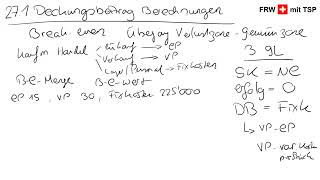 27.1 Deckungsbeitrag Berechnungen
FRW + mit TSP
Break-even Übergang Verlustzone - Gewinnzone
Kaufm Handel Einkauf → EP
Verkauf → VP
Lager/Personal → Fixkosten
B-E-Menge B-E-Wert
EP 15, VP 30, Fixkosten 225'000
3 GL
SK = NE
Erfolg = 0
DB = Fixk
↳ VP-EP
VP- var Kosten
pro Stück